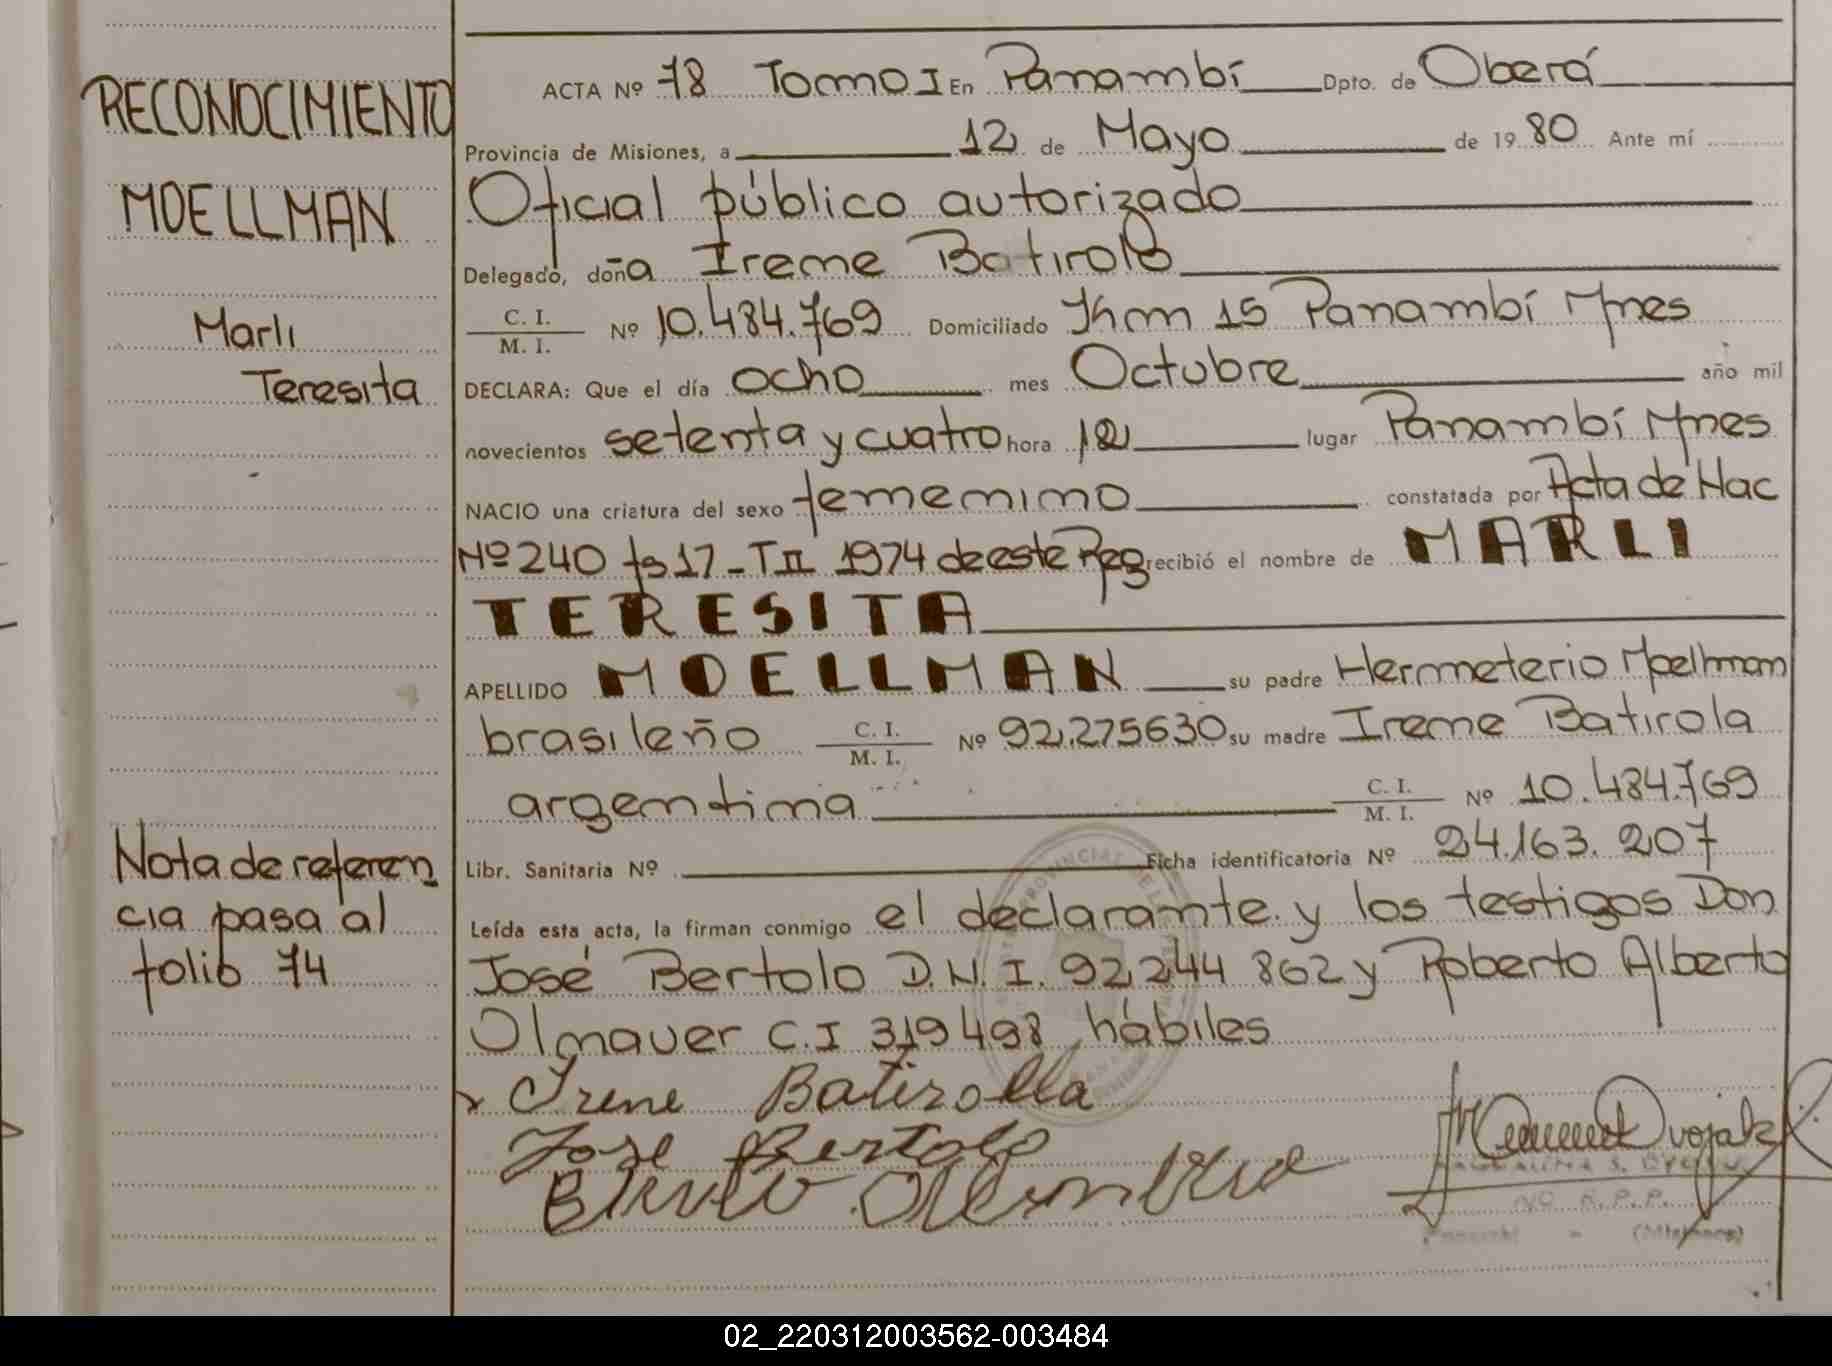 RECONOCIMIENTO
MOELLMAN
Marli
Teresita
Nota de referen
cia pasa al
folio 74
ACTA Nº 78 Tomo I En Panambí Dpto. de Oberá
Provincia de Misiones, a 12 de Mayo de 1980 Ante mí
Oficial público autorizado
Delegado, doña Irene Batirola
C. I.
M. I. Nº 10.484.769 Domiciliado Km 15 Panambí Mnes
DECLARA: Que el día ocho mes Octubre año mil
novecientos setenta y cuatro hora 12 lugar Panambí Mnes
NACIO una criatura del sexo femenino constatada por Acta de Nac
Nº 240 fs 17 - T II 1974 de este Reg recibió el nombre de MARLI
TERESITA
APELLIDO MOELLMAN su padre Hermeterio Moellman
brasileño C. I.
M. I. Nº 92.275630 su madre Irene Batirola
argentina C. I.
M. I. Nº 10.484.769
Libr. Sanitaria Nº Ficha identificatoria Nº 24.163.207
Leída esta acta, la firman conmigo el declarante y los testigos Don
José Bertolo D.N.I. 92244862 y Roberto Alberto
Olmauer C.I 319498 hábiles
Irene Batirolla
Jose Bertolo
02_220312003562-003484